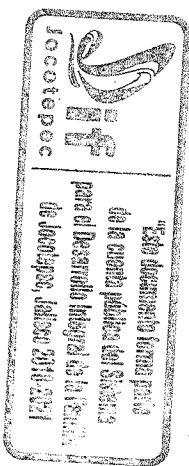 Dif
Jocotepec
"Este documento forma parte
de la cuenta pública del Sistema
para el Desarrollo Integral de la Familia
de Jocotepec, Jalisco 2018-2021